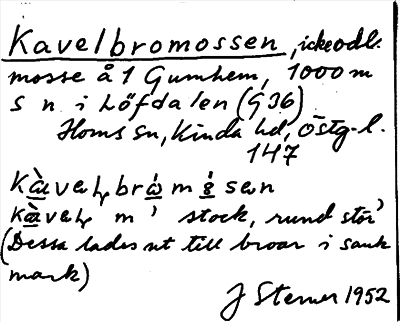 Kavelbromossen, ickeodl.
mosse å 1 Gumhem, 1000 m
S n. i Löfdalen (G 36)
Horns sn, Kinda hd, Östg. l.
147
Kàveḷbròmósen
Kàveḷ m ' stock, rund stör'
(Dessa lades ut till broar i sank
mark)
J Sterner 1952